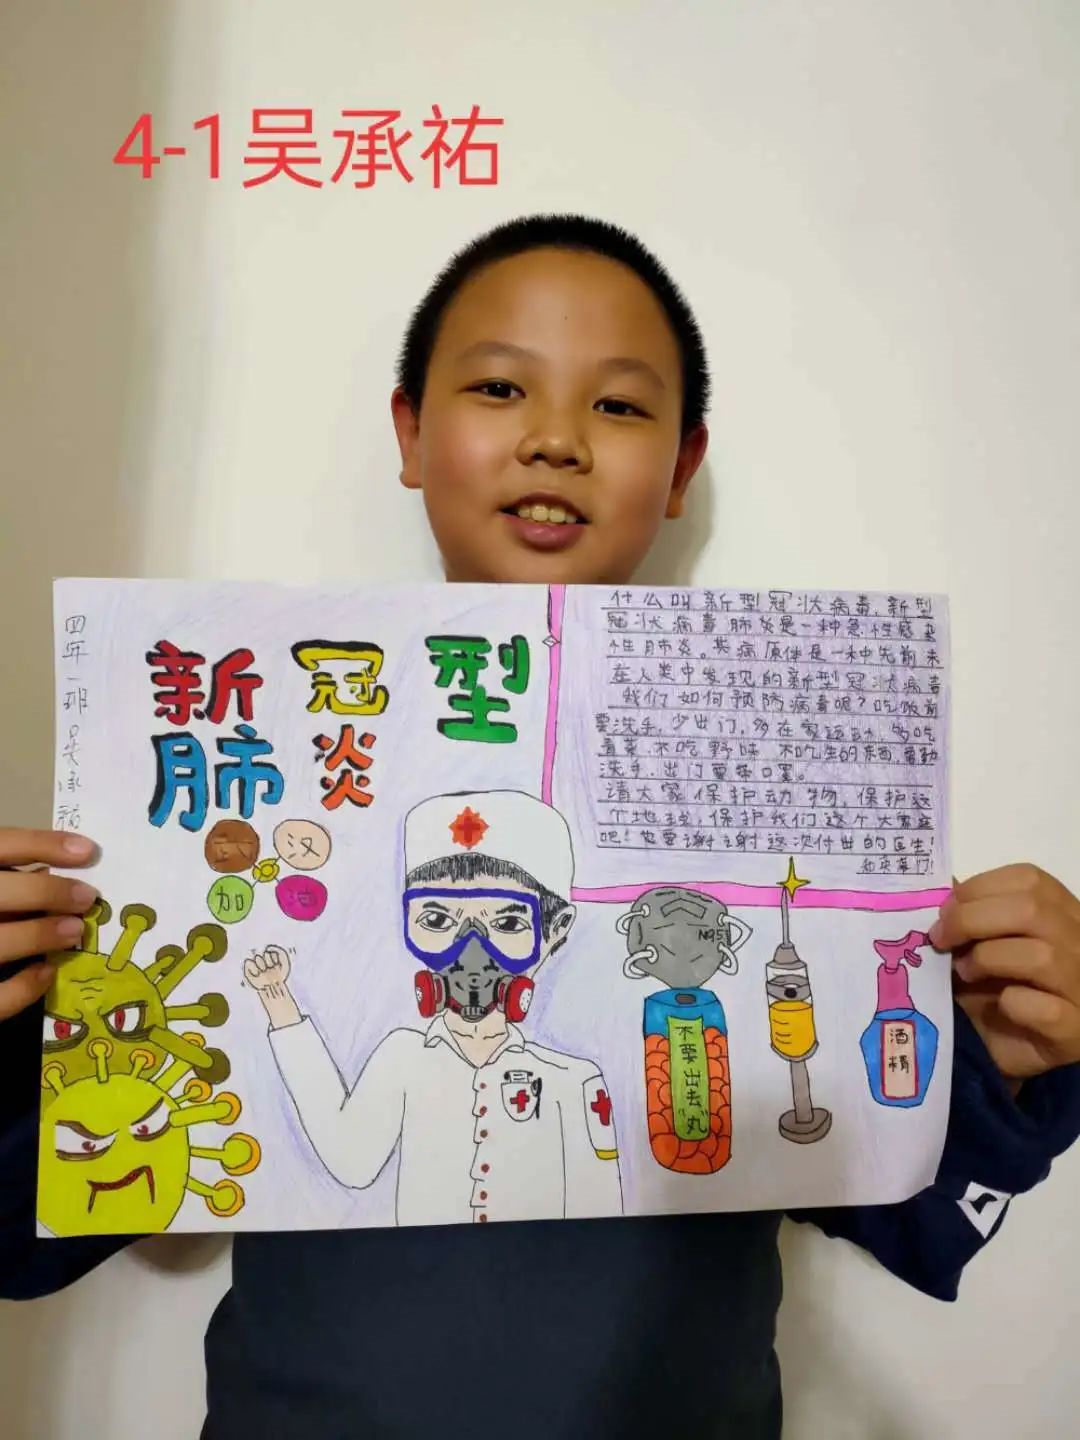 4-1吴承祐
四年一班吴承祐
新冠型
肺炎
武汉
加油
什么叫新型冠状病毒,新型
冠状病毒肺炎是一种急性感染
性肺炎。其病原体是一种先前未
在人类中发现的新型冠状病毒
我们如何预防病毒呢?吃饭前
要洗手,少出门,多在家运动,多吃
青菜,不吃野味,不吃生的东西,勤
洗手,出门要带口罩。
请大家保护动物,保护这
个地球,保护我们这个大家庭
吧!也要谢谢这次付出的医生!
和英雄们!
N95
不要出去"丸"
酒精